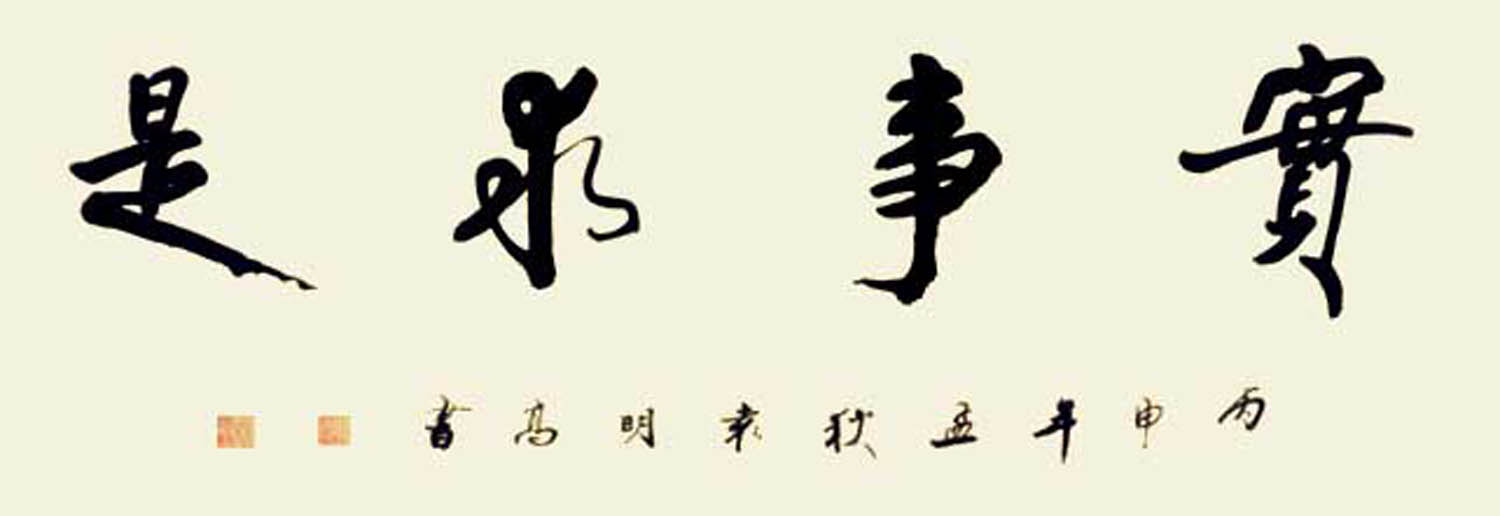 實事求是
丙申年孟秋袁明高書